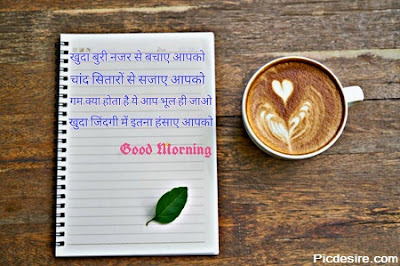 खुदा बुरी नजर से बचाए आपको
चांद सितारों से सजाए आपको
गम क्या होता है ये आप भूल ही जाओ
खुदा जिंदगी में इतना हंसाए आपको
Good Morning
Picdesire.com